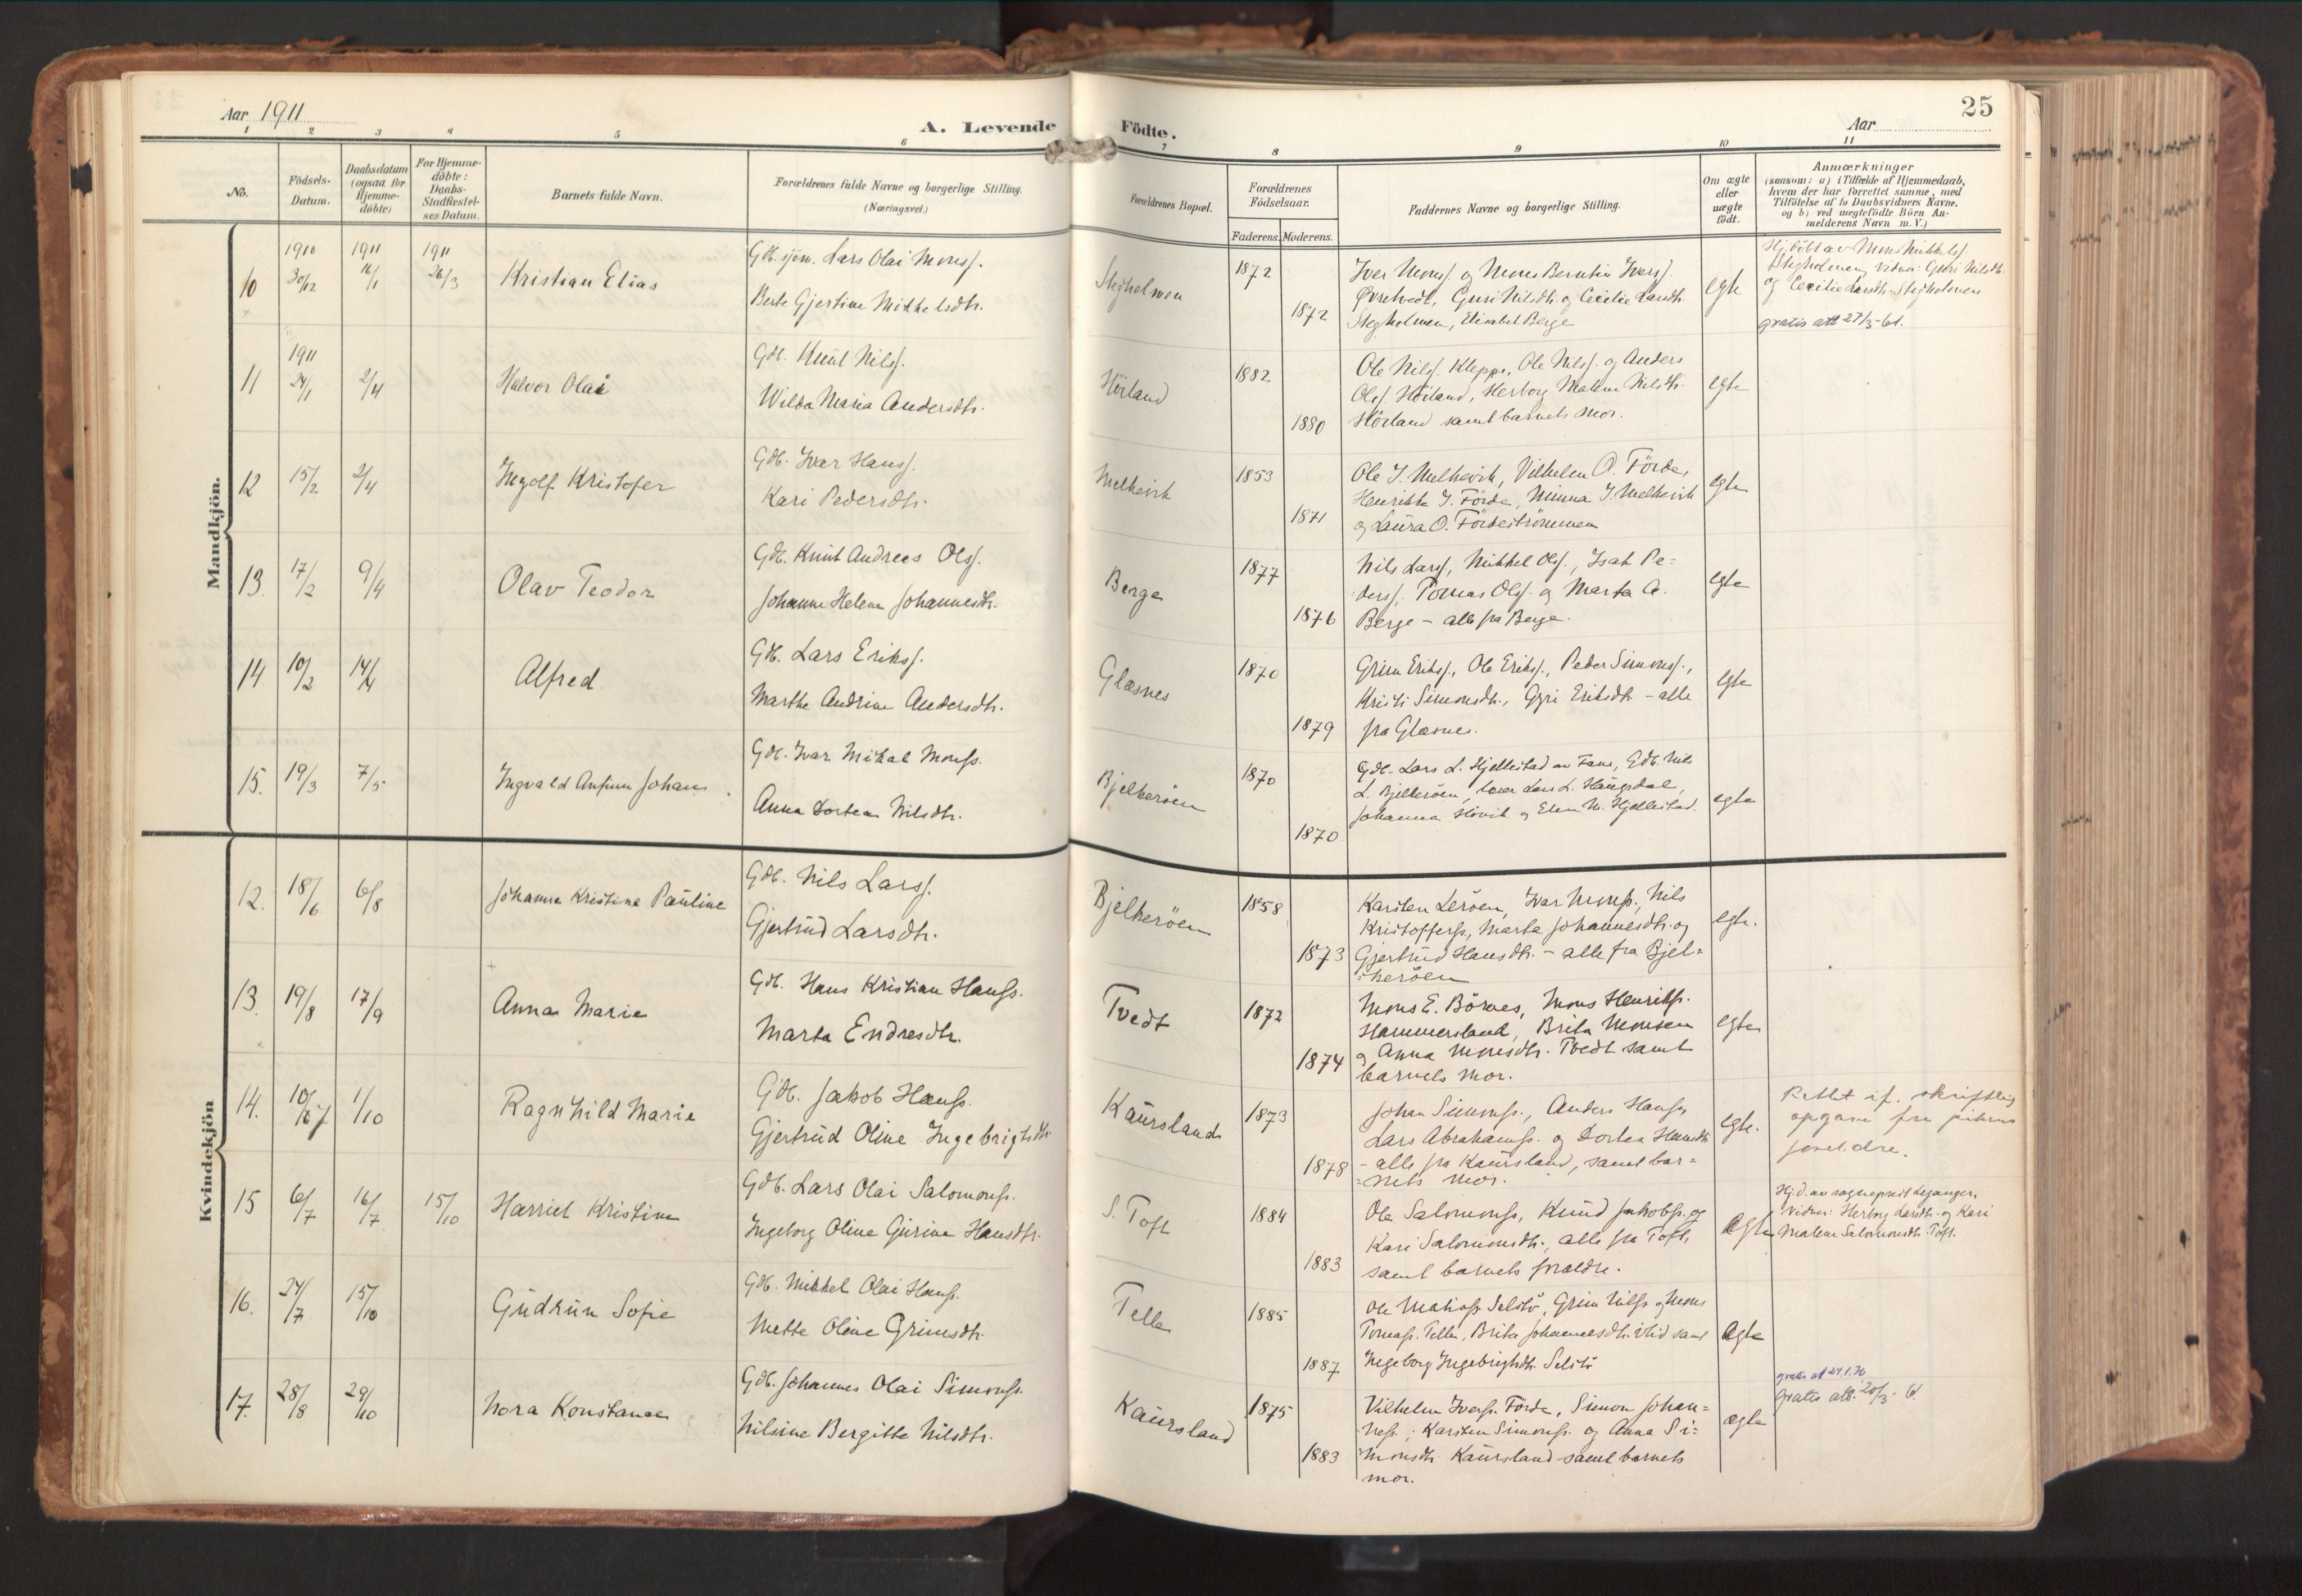 Aar 1911
A. Levende Födte.
Aar
25
1 2 3 4 5 6 7 8 9 10 11
No.
Födsels-Datum.
Daabsdatum (ogsaa for Hjemme-döbte)
For Hjemme-döbte: Daabs-Stadfæstel-ses Datum.
Barnets fulde Navn.
Forældrenes fulde Navne og borgerlige Stilling.
(Næringsvei.)
Forældrenes Bopæl.
Forældrenes Födselsaar.
Faderens. Moderens.
Faddernes Navne og borgerlige Stilling.
Om ægte eller uægte födt.
Anmærkninger
(saasom: a) i Tilfælde af Hjemmedaab,
hvem der har forrettet samme, med
Tilföielse af to Daabsvidners Navne.
og b) ved uægtefödte Börn An-
melderens Navn m. V.)
Mandkjön.
10 1910 30/12 1911 16/1 1911 26/3 Kristian Elias
Gdb. sjøm. Lars Olai Monsf.
Berte Gjertine Mikkelsdtr.
Stegholmen 1872 1872
Iver Monsf. og Mons Berntin Iversf.
Øvretvedt, Guri Nilsdtr. og Cecilie Larsdtr.
Stegholmen, Elisabet Berge
egte
Hj.döbt av Mons Mikkelsf.
Stegholmen, vidner: Guri Nilsdtr.
og Cecilie Larsdtr. Stegholmen
gratis att 27/3-61.
11 1911 24/1 2/4 Halvor Olai
Gdb. Knut Nilsf.
Wilba Maria Andersdtr.
Hörland 1882 1880
Ole Nilsf. Kleppe, Ole Nilsf. og Anders
Olsf. Hörland, Herborg Malene Nilsdtr.
Hörland samt barnets mor.
egte
12 15/2 2/4 Ingolf Kristofer
Gdb. Ivar Hansf.
Kari Pedersdtr.
Melkevik 1853 1871
Ole I. Melkevik, Vilhelm O. Förde,
Henrikke I. Förde, Minna I. Melkevik
og Laura O. Fördeströmmen
egte
13 17/2 9/4 Olav Teodor
Gdb. Knut Andreas Olsf.
Johanne Helene Johannesdtr.
Berge 1877 1876
Nils Larsf, Mikkel Olsf., Isak Pe=
dersf, Tomas Olsf. og Marta A.
Berge - alle fra Berge.
egte
14 10/2 14/4 Alfred
Gdb. Lars Eriksf.
Marthe Andrine Andersdtr.
Glæsnes 1870 1879
Grim Eriksf., Ole Eriksf., Peder Simonsf.,
Kristi Simonsdtr., Gyri Eriksdtr - alle
fra Glæsnes.
egte
15. 19/3 7/5 Ingvald Anfinn Johans
Gdb. Ivar Mikal Monsf.
Anna Dortea Nilsdtr.
Bjelkeröen 1870 1870
Gdb. Lars L. Hjellestad av Fane, Gdb. Nils
L. Bjelkeröen, Lars L. Haugsdal,
Johanna Hövik og Elen N. Hjellestad.
egte
Kvindekjön
12. 18/6 6/8 Johanna Kristina Pauline
Gdb. Nils Larsf.
Gjertrud Larsdtr.
Bjelkeröen 1858 1873
Karsten Leröen, Ivar Monsf., Nils
Kristoffersf., Marta Johannesdtr. og
Gjertrud Hansdtr. - alle fra Bjel=
keröen
egte.
13. 19/8 17/9 Anna Marie
Gdb. Hans Kristian Hansf.
Marta Endresdtr.
Tvedt 1872 1874
Mons E. Börnes, Mons Henriksf.
Hammersland, Brita Monsen
og Anna Monsdtr. Tvedt samt
barnets mor.
egte
14. 10/67 1/10 Ragnhild Marie
Gdb. Jakob Hansf.
Gjertrud Oline Ingebrigtsdtr.
Kaursland 1873 1878
Johan Simonsf., Anders Hansf,
Lars Abrahamsf. og Dortea Hansdtr
- alle fra Kaursland, samt bar=
nets mor.
egte.
Rettet if. skriftlig
opgave fra pikens
foreldre.
15 6/7 16/7 15/10 Harriet Kristine
Gdb. Lars Olai Salomonsf.
Ingeborg Oline Gurine Hansdtr.
S. Toft 1884 1883
Ole Salomonsf, Knud Jakobsf. og
Kari Salomonsdtr., alle fra Toft,
samt barnets foraldre.
Egte
Hj.d. av sogneprest Leganger.
Vidner: Herborg Larsdtr. og Kari
Malene Salomonsdtr. Toft.
16. 24/7 15/10 Gudrun Sofie
Gdb. Mikkel Olai Hansf.
Mette Oline Grimsdtr.
Telle 1885 1887
Ole Matiasf. Selstö, Grim Nilsf. og Mons
Tomasf. Telle, Brita Johannesdtr. ibid samt
Ingeborg Ingebrigtsdtr. Selstö
Ægte
17. 28/8 29/10 Nora Konstance
Gdb. Johannes Olai Simonsf.
Nilsine Bergitte Nilsdtr.
Kaursland 1875 1883
Vilhelm Iversf. Förde, Simon Johan=
nesf., Karsten Simonsf. og Anna Si=
monsdtr. Kaursland samt barnets
mor.
ægte
gratis att 24.1.76
Gratis att. 20/3-61